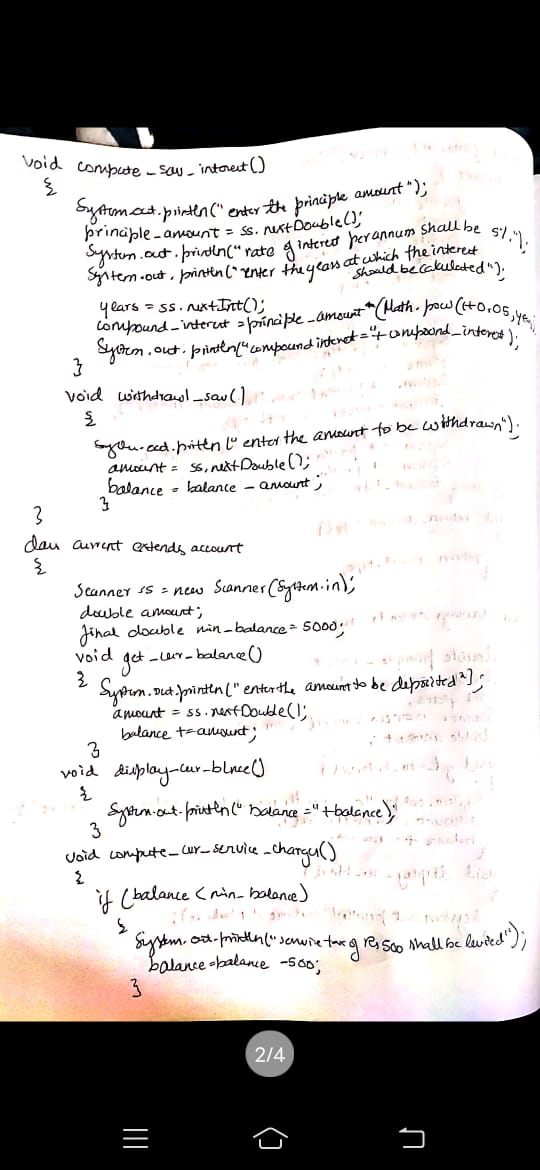 void compute_sav_interest()
{
System.out.println(" enter the principle amount ");
principle_amount = ss. nextDouble();
System.out.println("rate of interest per annum shall be 5%.");
System.out.println("enter the years at which the interest
should be calculated");
years = ss.nextInt();
compound_interest = principle_amount*(Math.pow(1+0.05, ye
System.out.println("compound interest="+compound_interest);
}
void withdrawl_sav()
{
System.out.println(" enter the amount to be withdrawn");
amount = ss.nextDouble();
balance = balance - amount;
}
}
class current extends account
{
Scanner ss = new Scanner(System.in);
double amount;
final double min_balance = 5000;
void get_curr_balance()
{
System.out.println(" enter the amount to be deposited");
amount = ss.nextDouble();
balance += amount;
}
void display_cur_blnce()
{
System.out.println(" balance ="+balance);
}
void compute_cur_service_charge()
{
if (balance < min_balance)
{
System.out.println("service tax of Rs 500 shall be levied");
balance=balance -500;
}
2/4